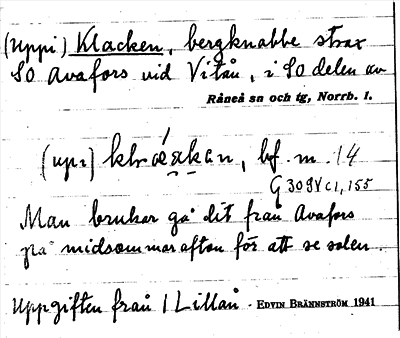 (Uppi) Klacken, bergknabbe strax
SO Avafors vid Vitån, i SO delen av
Råneå sn och tg, Norrb. l.
bf. m. 14
G 309 V c 1, 155
Man brukar gå dit från Avafors
på midsommarafton för att se solen.
Uppgiften från I Lillån. EDVIN BRÄNNSTRÖM 1941